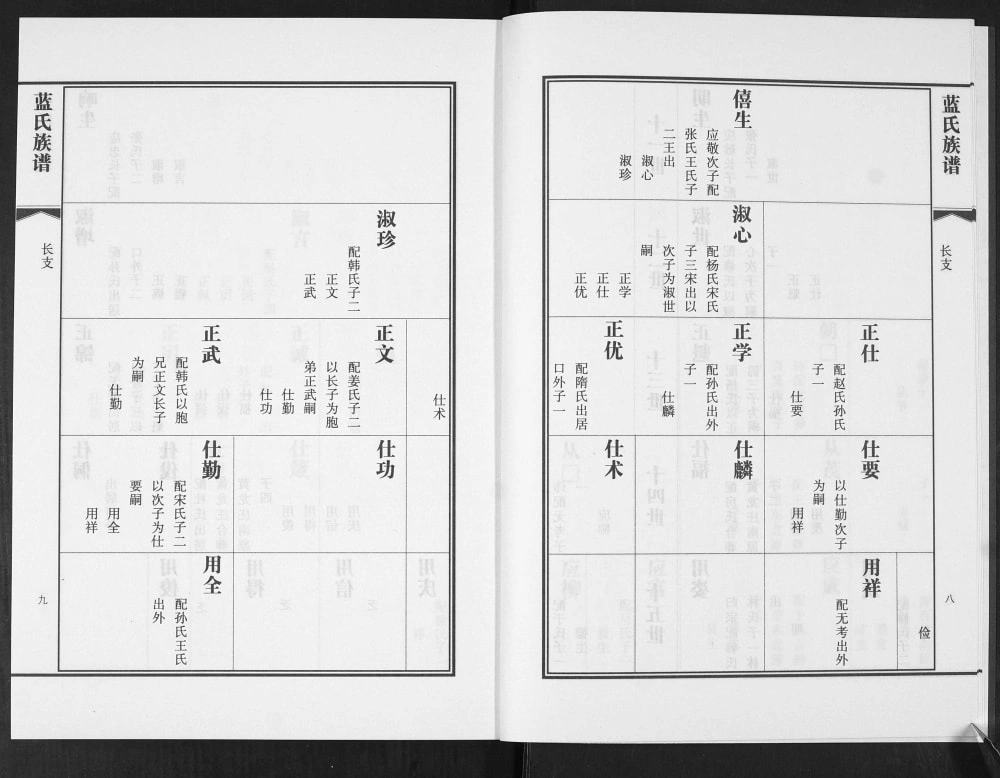 蓝氏族谱
长支
八
僖生
应敬次子配
张氏王氏子
二王出
淑心
淑珍
淑心
配杨氏宋氏
子三宋出以
次子为淑世
嗣
正学
正仕
正优
正仕
配赵氏孙氏
子一
仕要
正学
配孙氏出外
子一
仕麟
正优
配隋氏出居
口外子一
仕要
以仕勤次子
为嗣
用祥
仕麟
仕术
俭
用祥
配无考出外
蓝氏族谱
长支
九
淑珍
配韩氏子二
正文
正武
仕术
正文
配姜氏子二
以长子为胞
弟正武嗣
仕勤
仕功
正武
配韩氏以胞
兄正文长子
为嗣
仕勤
仕功
仕勤
配宋氏子二
以次子为仕
要嗣
用全
用祥
用全
配孙氏王氏
出外